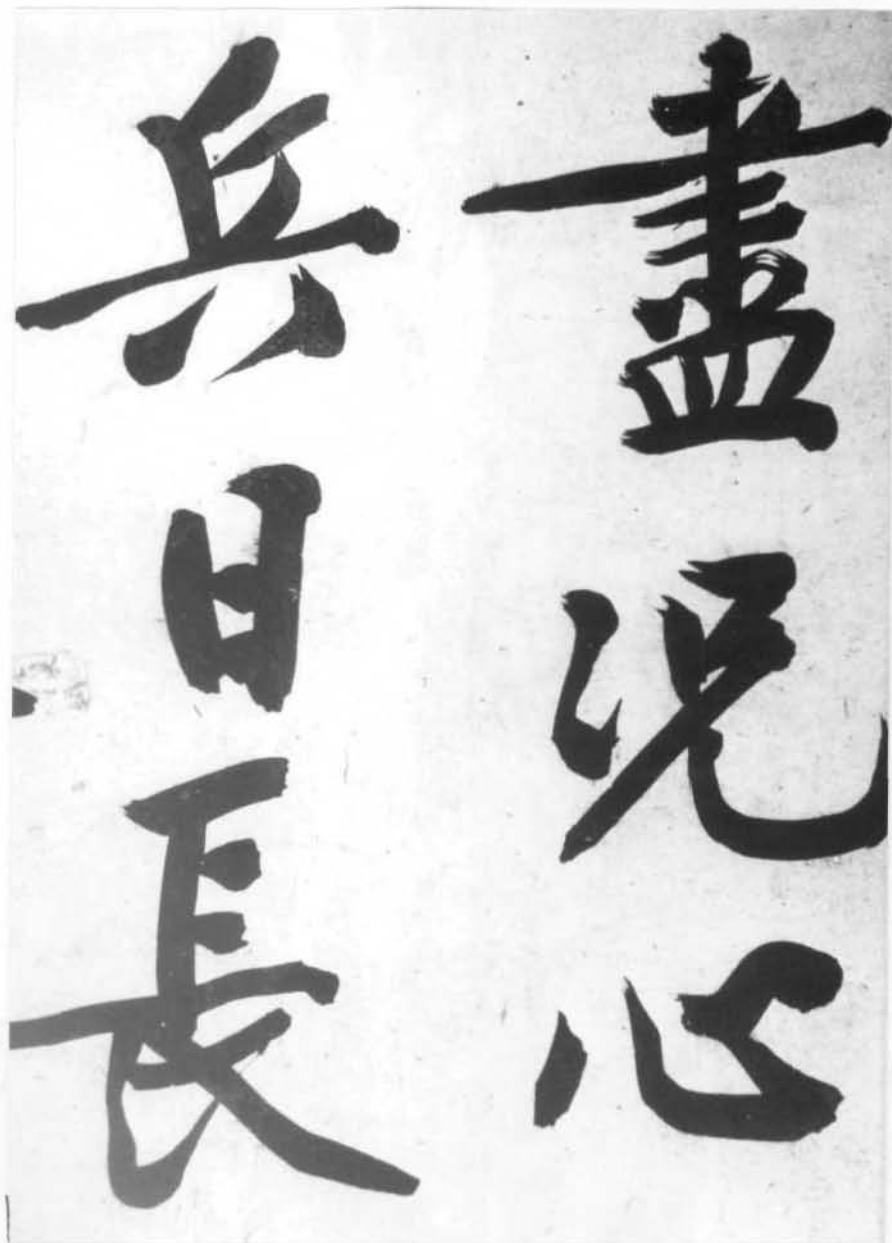 盡況心
兵日長